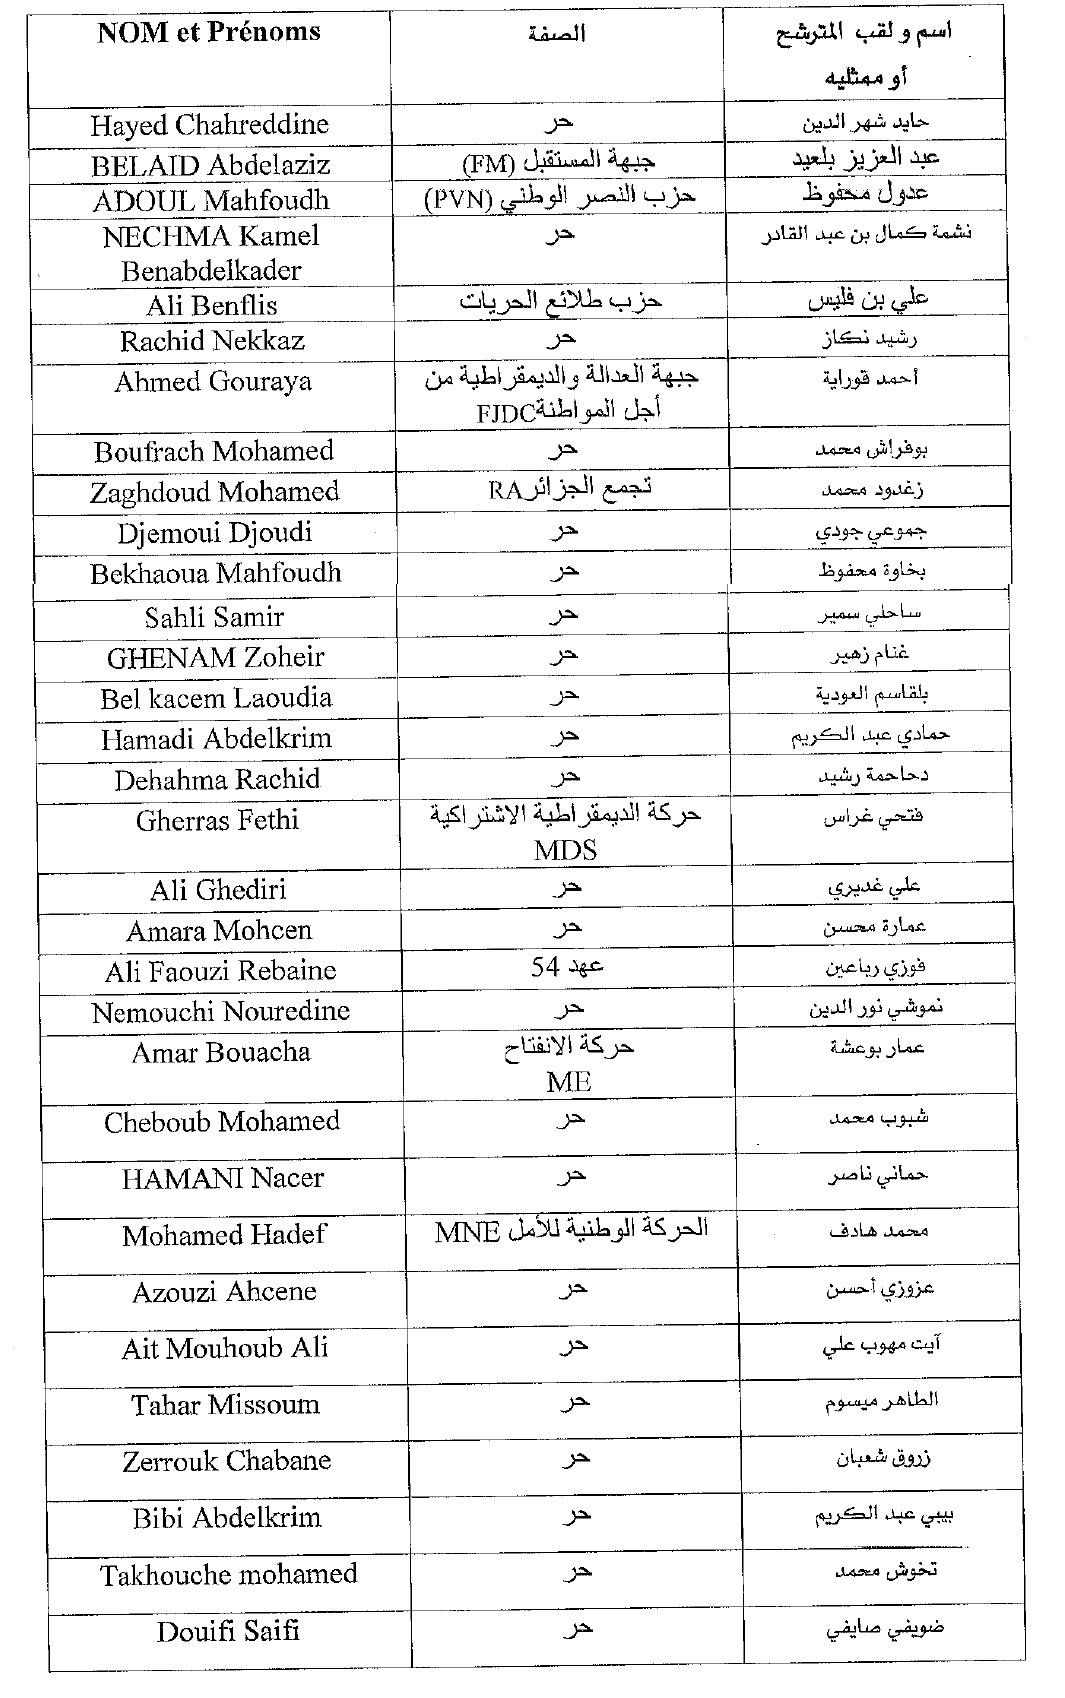 NOM et Prénoms الصفة اسم و لقب المترشح
أو ممثليه
Hayed Chahreddine حر حايد شهر الدين
BELAID Abdelaziz جبهة المستقبل (FM) عبد العزيز بلعيد
ADOUL Mahfoudh حزب النصر الوطني (PVN) عدول محفوظ
NECHMA Kamel حر نشمة كمال بن عبد القادر
Benabdelkader
Ali Benflis حزب طلائع الحريات علي بن فليس
Rachid Nekkaz حر رشيد نكاز
Ahmed Gouraya جبهة العدالة والديمقراطية من أحمد قوراية
أجل المواطنة FJDC
Boufrach Mohamed حر بوفراش محمد
Zaghdoud Mohamed تجمع الجزائر RA زغدود محمد
Djemoui Djoudi حر جموعي جودي
Bekhaoua Mahfoudh حر بخاوة محفوظ
Sahli Samir حر ساحلي سمير
GHENAM Zoheir حر غنام زهير
Bel kacem Laoudia حر بلقاسم العودية
Hamadi Abdelkrim حر حمادي عبد الكريم
Dehahma Rachid حر دحاحمة رشيد
Gherras Fethi حركة الديمقراطية الاشتراكية فتحي غراس
MDS
Ali Ghediri حر علي غديري
Amara Mohcen حر عمارة محسن
Ali Faouzi Rebaine عهد 54 فوزي رباعين
Nemouchi Nouredine حر نموشي نور الدين
Amar Bouacha حركة الانفتاح عمار بوعشة
ME
Cheboub Mohamed حر شبوب محمد
HAMANI Nacer حر حماني ناصر
Mohamed Hadef الحركة الوطنية للأمل MNE محمد هادف
Azouzi Ahcene حر عزوزي أحسن
Ait Mouhoub Ali حر آيت مهوب علي
Tahar Missoum حر الطاهر ميسوم
Zerrouk Chabane حر زروق شعبان
Bibi Abdelkrim حر بيبي عبد الكريم
Takhouche mohamed حر تخوش محمد
Douifi Saifi حر ضويفي صايفي